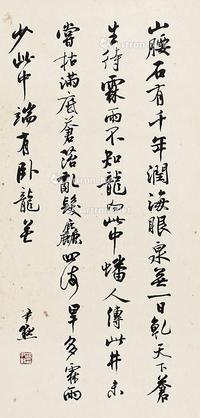 山腰石有千年潤海眼泉無一日乾天下蒼
生待霖雨不知龍向此中蟠人傳此井未
嘗枯滿底蒼苔亂髮麤四海旱多霖雨
少此中端有臥龍無
尹默